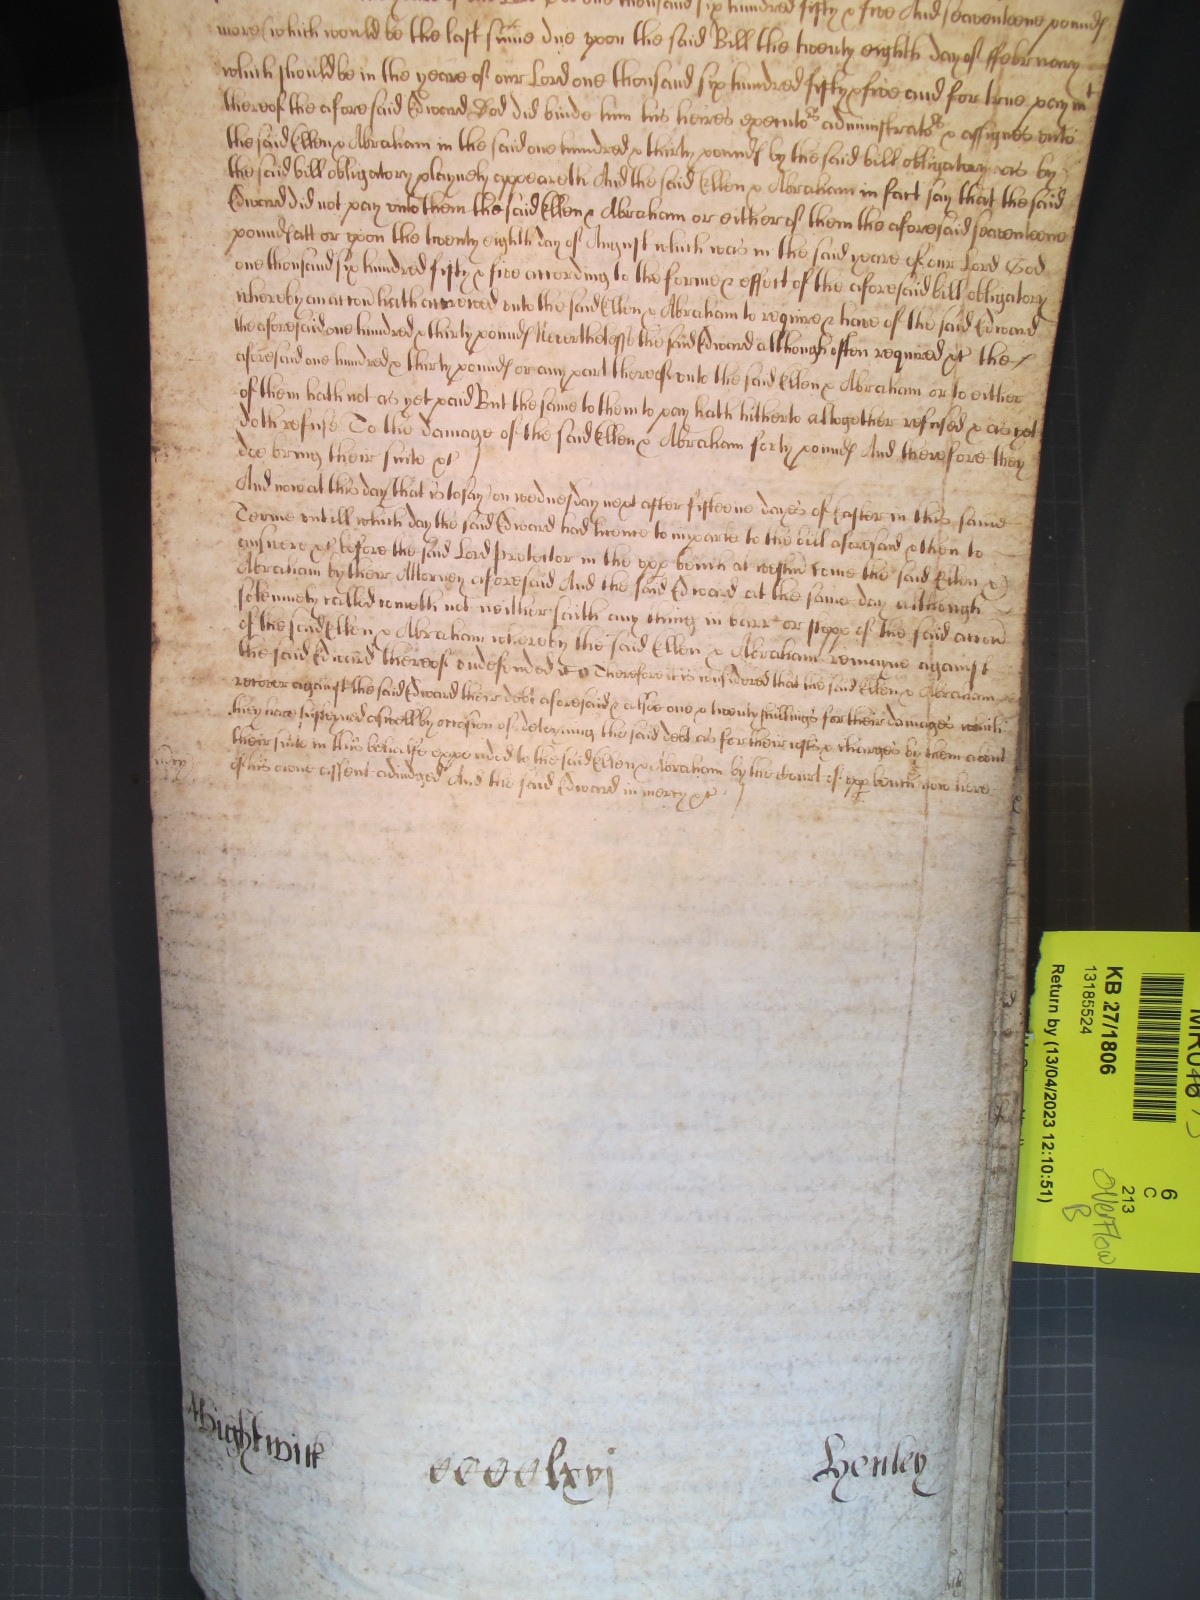 one thousand six hundred fifty & five And seaventeene pounds
more which would be the last sume due upon the said Bill the twenty eighth day of ffebruary
which should be in the yeare of our Lord one thousand six hundred fifty & five and for true paymt
thereof the aforesaid Edward God did binde him his heires executors administrators & assignes unto
the said Ellen & Abraham in the said one hundred & thirty pounds by the said bill obligatory as by
the said bill obligatory playnely appeareth And the said Ellen & Abraham in fact say that the said
Edward did not pay unto them the said Ellen & Abraham or either of them the aforesaid seaventeene
pounds att or upon the twenty eighth day of August which was in the said yeare of our Lord God
one thousand six hundred fifty & five according to the forme & effect of the aforesaid bill obligatory
whereby an accon hath accrewed unto the said Ellen & Abraham to require & have of the said Edward
the aforesaid one hundred & thirty pounds Neverthelesse the said Edward although often required &c the
aforesaid one hundred & thirty pounds or any part thereof unto the said Ellen & Abraham or to either
of them hath not as yet paid But the same to them to pay hath hitherto altogether refused & as yet
doth refuse To the damage of the said Ellen & Abraham forty pounds And therefore they
doe bring their suite &c
And now at this day that is to say on wednesday next after fifteene dayes of Easter in this same
Terme untill which day the said Edward had licence to imparle to the bill aforesaid & then to
answere &c before the said Lord Protector in the upp bench at westm come the said Ellen &
Abraham by their Attorney aforesaid And the said Edward at the same day although
solemnely called cometh not neither saith any thing in barr or stopp of the said accon
of the said Ellen & Abraham whereby the said Ellen & Abraham remayne against
the said Edward thereof undefended &c Therefore it is considered that the said Ellen & Abraham
recover against the said Edward their debt aforesaid & alsoe one & twenty shillings for their damages which
they have susteyned aswell by occasion of deteyning the said debt as for their costs & charges by them about
their suite in this behalfe expended to the said Ellen & Abraham by the Court of upp bench now here
of his owne assent adiudged And the said Edward in mercy &c
mercy
Wightwick
CCCClxvj
Henley
KB 27/1806
13185524
Return by (13/04/2023 12:10:51)
6
C
213
Overflow
B